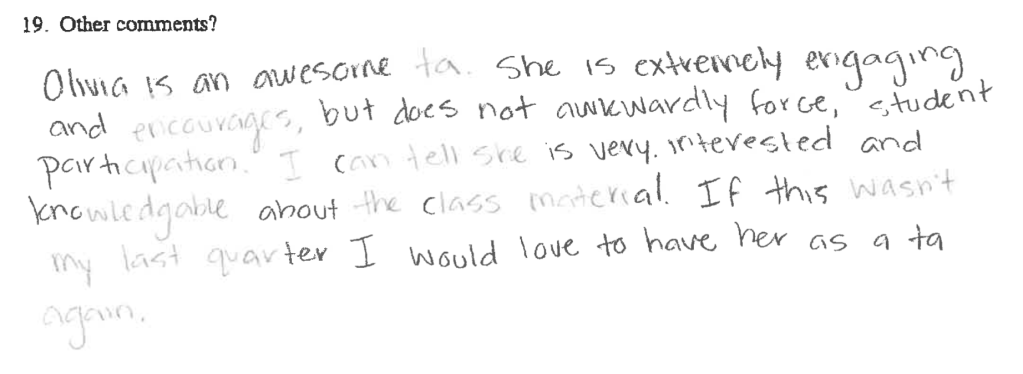 19. Other comments?
Olivia is an awesome ta. She is extremely engaging
and encourages, but does not awkwardly force, student
participation. I can tell she is very interested and
knowledgable about the class material. If this wasn't
my last quarter I would love to have her as a ta
again.